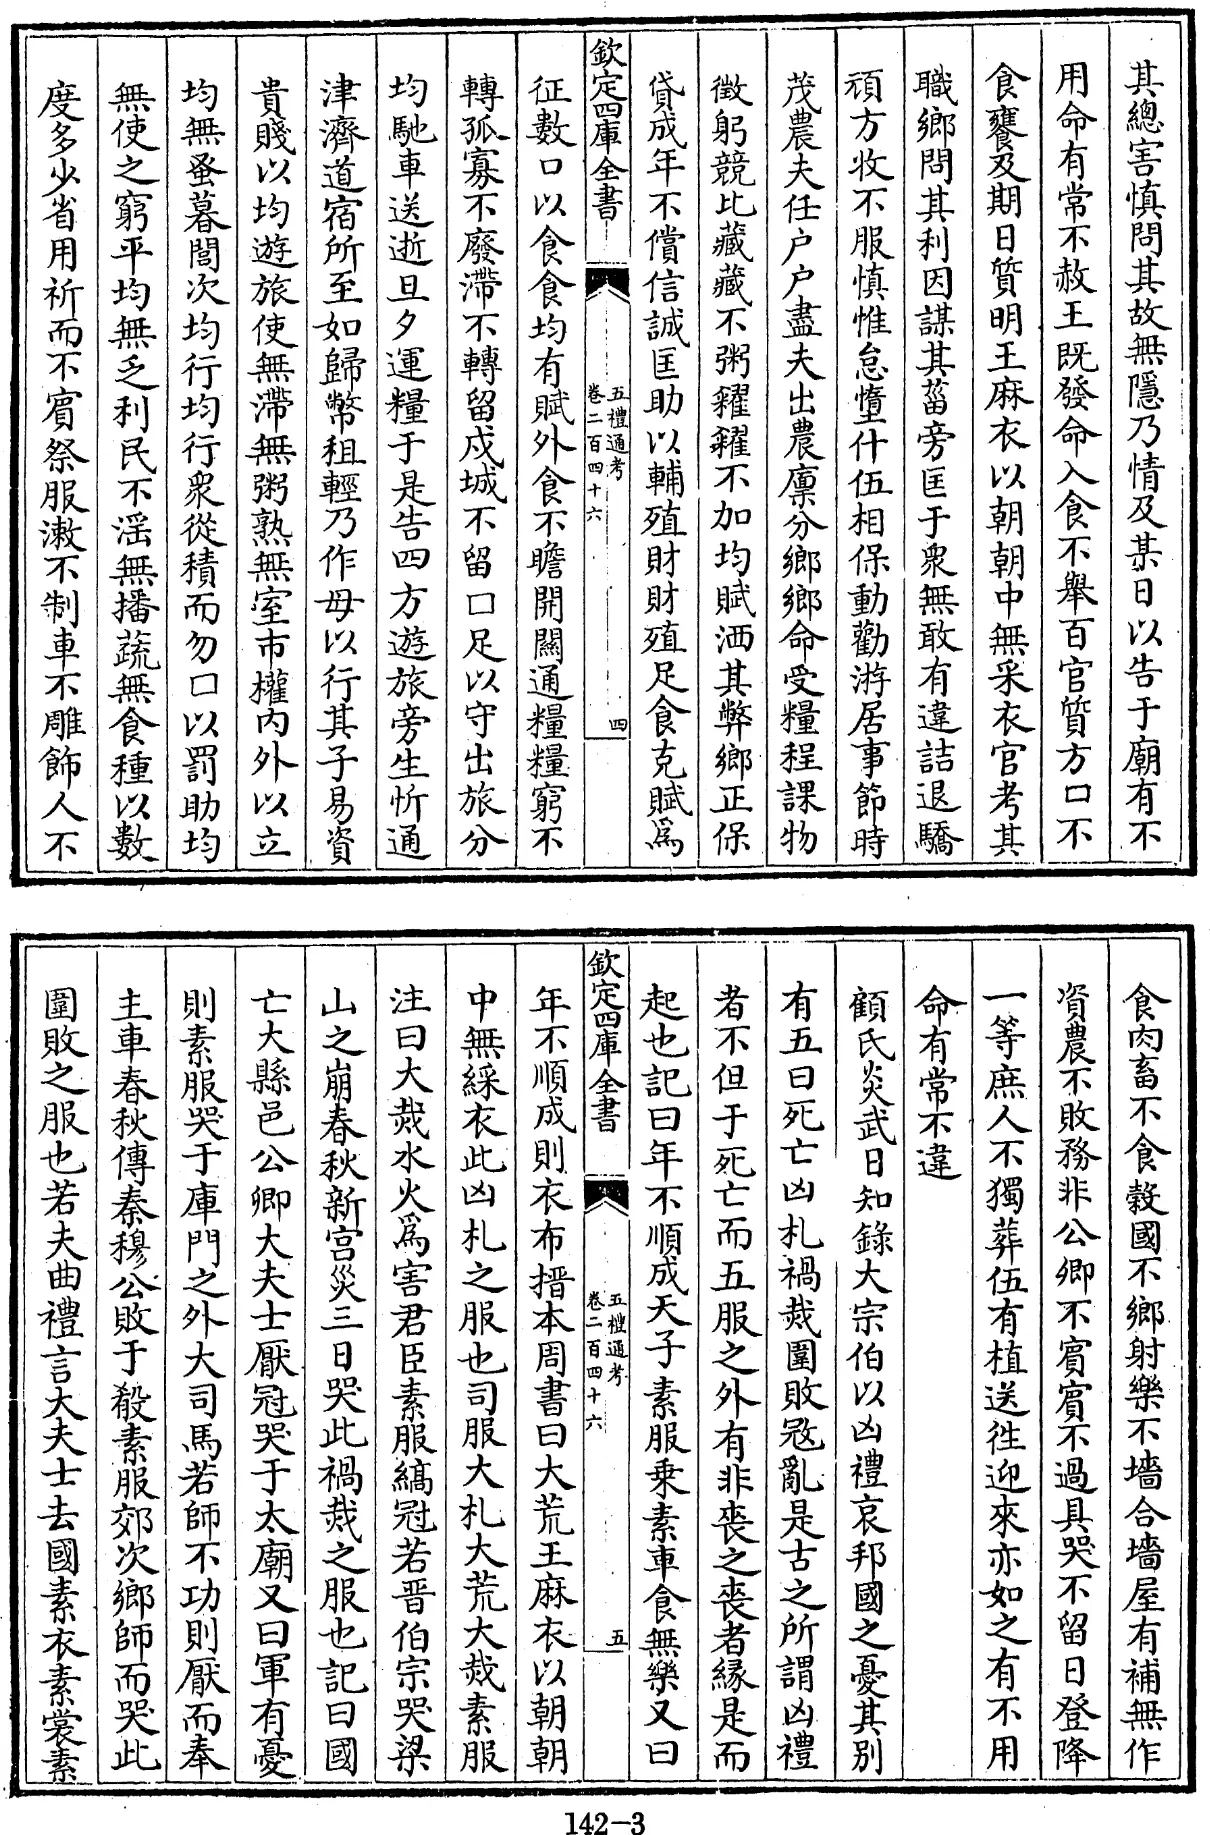 其總害慎問其故無隱乃情及某日以告于廟有不
用命有常不赦王既發命入食不舉百官質方口不
食饔及期日質明王麻衣以朝朝中無采衣官考其
職鄉問其利因謀其菑旁匡于衆無敢有違詰退驕
頑方收不服慎惟怠墮什伍相保動勸游居事節時
茂農夫任户户盡夫出農廪分鄉鄉命受糧程課物
徵躬競比藏藏不粥糴糴不加均賦洒其弊鄉正保
貸成年不償信誠匡助以輔殖財財殖足食克賦爲
欽定四庫全書
五禮通考
卷二百四十六
四
征數口以食食均有賦外食不瞻開關通糧糧窮不
轉孤寡不廢滯不轉留戍城不留口足以守出旅分
均馳車送逝旦夕運糧于是告四方遊旅旁生忻通
津濟道宿所至如歸幣租輕乃作母以行其子易資
貴賤以均遊旅使無滯無粥熟無室市權内外以立
均無蚤暮閭次均行均行衆從積而勿口以罰助均
無使之窮平均無乏利民不滛無播蔬無食種以數
度多少省用祈而不賓祭服漱不制車不雕飾人不
食肉畜不食穀國不鄉射樂不墻合墻屋有補無作
資農不敗務非公卿不賓賓不過具哭不留日登降
一等庶人不獨葬伍有植送徃迎來亦如之有不用
命有常不違
顧氏炎武日知錄大宗伯以凶禮哀邦國之憂其别
有五曰死亡凶札禍烖圍敗宼亂是古之所謂凶禮
者不但于死亡而五服之外有非喪之喪者縁是而
起也記曰年不順成天子素服乗素車食無樂又曰
欽定四庫全書
五禮通考
卷二百四十六
五
年不順成則衣布搢本周書曰大荒王麻衣以朝朝
中無綵衣此凶札之服也司服大札大荒大烖素服
注曰大烖水火爲害君臣素服縞冠若晋伯宗哭梁
山之崩春秋新宮災三日哭此禍烖之服也記曰國
亡大縣邑公卿大夫士厭冠哭于太廟又曰軍有憂
則素服哭于庫門之外大司馬若師不功則厭而奉
主車春秋傳秦穆公敗于殽素服郊次鄉師而哭此
圍敗之服也若夫曲禮言大夫士去國素衣素裳素
142-3